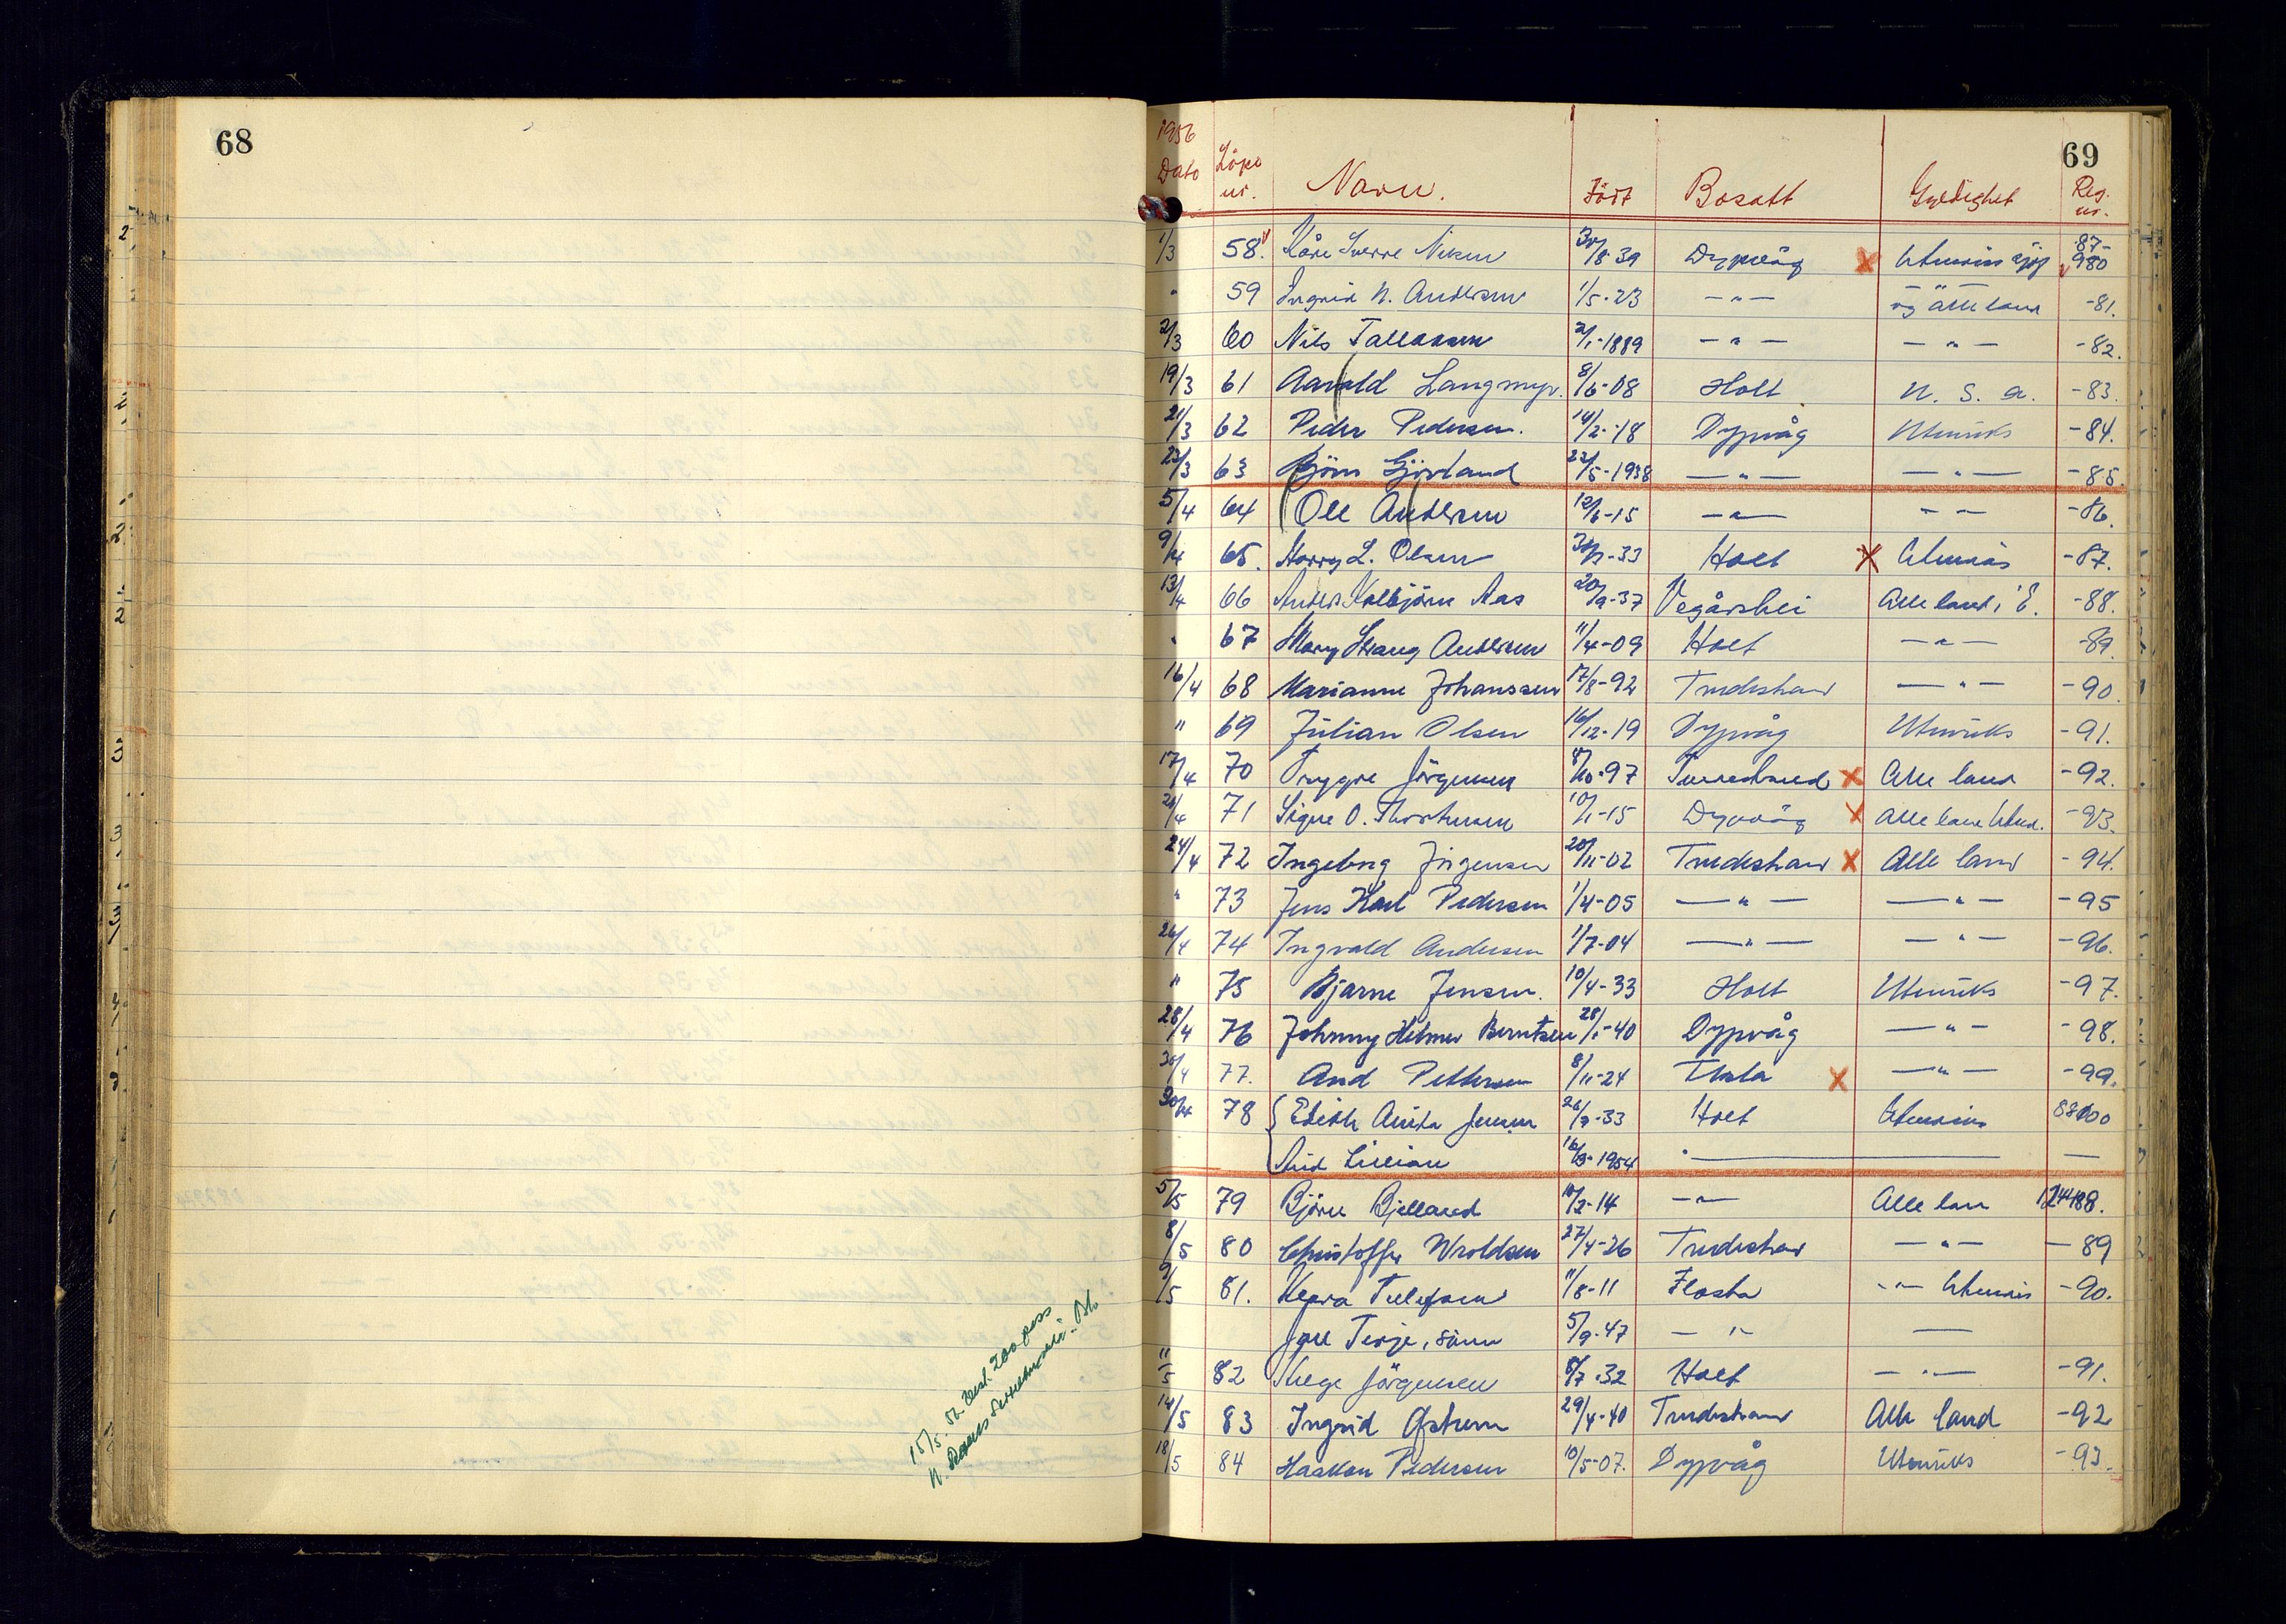 68
15/5. 56 Best. 200 pass
1956
69
Dato Löpe nr. Navn. Född Bosatt Gyldighet Reg. nr.
1/3 58. Kåre Sverre Nilsen 30/8-39 Dypvåg X Utenriks sjøf 87-980
" 59 Ingrid N. Andersen 1/5-23 -"- og Alle land -81.
2/3 60 Nils Tallaksen 2/1-1889 -"- -"- -82.
19/3 61 Aavald Langmyr. 8/6-08 Holt U. S. a. -83.
21/3 62 Peder Pedersen. 14/2-18 Dypvåg Utenriks -84.
23/3 63 Björn Gjövland 22/5-1938 -"- -"- -85.
5/4 64 Ole Andersen 12/6-15 -"- -"- -86.
9/4 65. Harry L. Olsen 30/7-33 Holt X Utenriks -87.
13/4 66 Anders Kolbjörn Aas 20/9-37 Vegårshei Alle land i E. -88.
" 67 Mary Strang Andersen 11/4-09 Holt -"- -89.
16/4 68 Marianne Johanssen 17/8-92 Tvedestrand -"- -90.
" 69 Julian Olsen 16/12-19 Dypvåg Utenriks -91.
17/4 70 Trygve Jörgensen 8/10-97 Tvedestrand X Alle land -92.
21/4 71 Signe O. Thorstensen 10/1-15 Dypvåg X Alle land Utenr. -93.
24/4 72 Ingeborg Jörgensen 20/11-02 Tvedestrand X Alle land -94.
" 73 Jens Karl Pedersen 1/4-05 -"- -"- -95
26/4 74 Ingvald Andersen 1/7-04 -"- -"- -96.
" 75 Bjarne Jensen. 10/4-33 Holt Utenriks -97.
28/4 76 Johnny Helmer Berntsen 28/1-40 Dypvåg -"- -98.
30/4 77. And Pettersen 8/11-24 Flosta X -"- -99.
30/4 78 Edith Anita Jensen 26/7-33 Holt Utenriks 88000
Aud Lillian 16/3-1954 " —
5/5 79 Björn Bjelland 10/2-14 -"- Alle lan 124488.
8/5 80 Christoffer Wroldsen 27/4-26 Tvedestrand -"- -89
9/5 81. Tellefsen 11/8-11 Flosta -"- Utenriks -90.
Terje, sönn 5/9-47 -"- —
11/5 82 Hege Jörgensen 8/7-32 Holt -"- -91.
14/5 83 Ingrid Østrem 29/4-40 Tvedestrand Alle land -92
18/5 84 Haakon Pedersen 10/5-07. Dypvåg Utenriks -93.